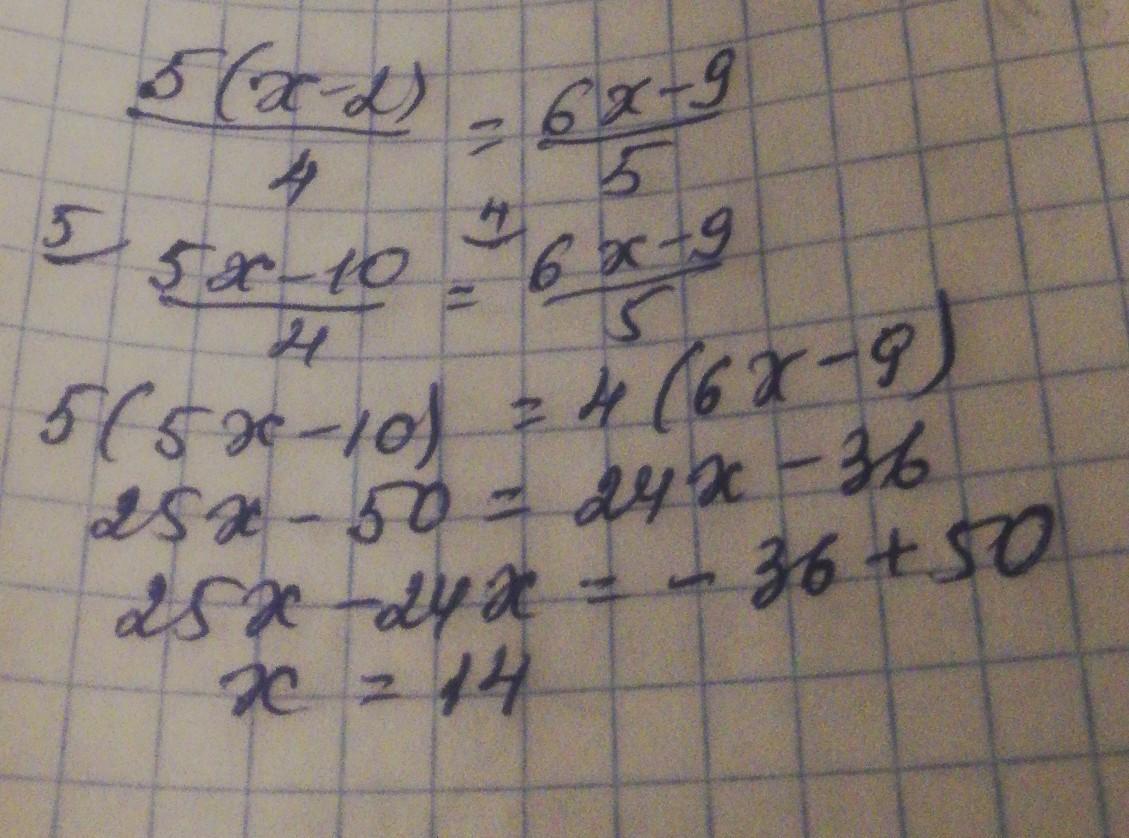 5(x-2)/4 = 6x-9/5
5⁄ 5x-10/4 = 4⁄ 6x-9/5
5(5x-10) = 4(6x-9)
25x - 50 = 24x - 36
25x - 24x = - 36 + 50
x = 14